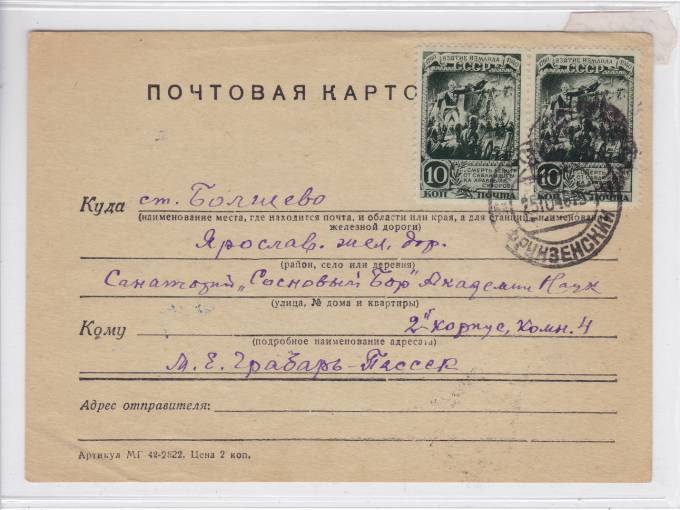 1790 ВЗЯТИЕ ИЗМАИЛА 1940
СССР
ПОЧТОВАЯ КАРТО
10 КОП ПОЧТА
10 КОП ПОЧТА
ФРУНЗЕНСКИЙ
Куда ст. Болшево
(наименование места, где находится почта, и области или края, а для станций наименование
железной дороги)
Ярослав. жел. дор.
(район, село или деревня)
Санаторий „Сосновый Бор" Академии Наук
(улица, № дома и квартиры)
Кому 2й корпус, комн. 4
(подробное наименование адресата)
М. Е. Грабарь-Пассек
Адрес отправителя:
Артикул МГ 42-2822. Цена 2 коп.